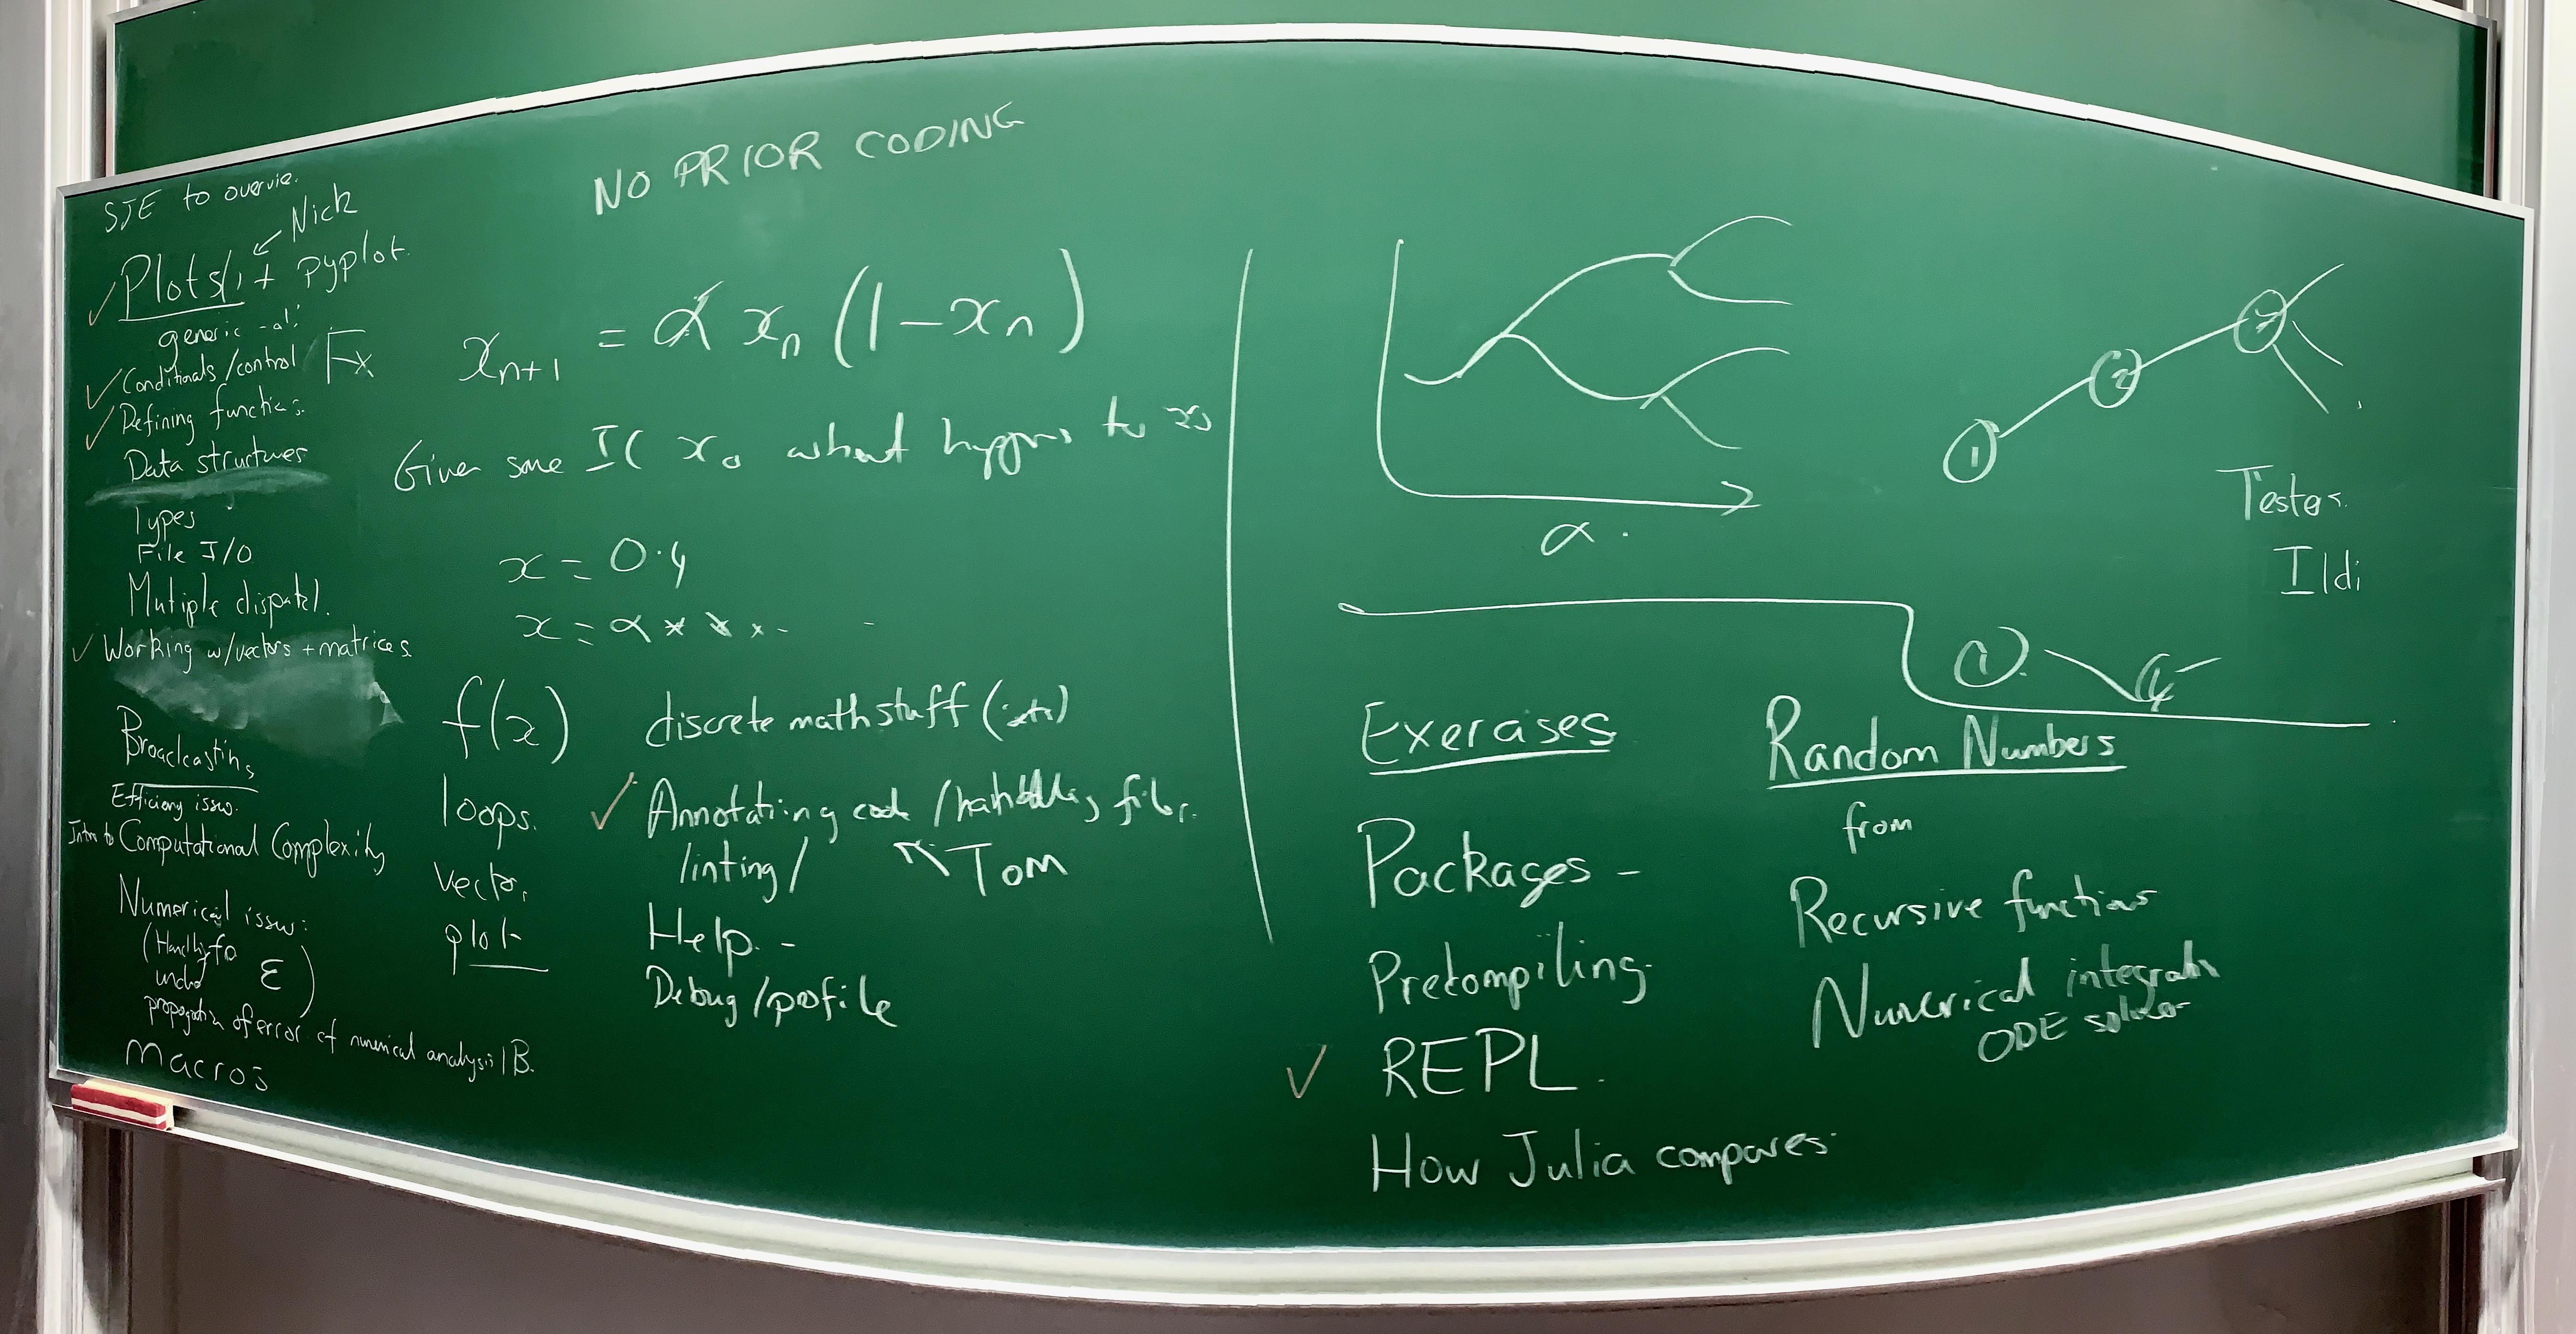 NO PRIOR CODING
SJE to overvie.
Nick
Plots/, + pyplot.
generic
Conditionals/control
Defining functions
Data structures
Types
File I/O
Mutiple dispatch.
Working w/vectors + matrices
Broadcasting
Efficiency issues.
Intro to Computational Complexity
Numerical issues:
(Handling
under ε)
propagation of error cf numerical analysis IB.
Macros
Ex x_{n+1} = α x_n (1 - x_n)
Given some IC x_0 what happens to
x = 0.4
x = α * x *
f(x)
loops.
vector,
plot
discrete math stuff
Annotating code / files
linting /
Tom
Help. -
Debug/profile
α.
1
2
7
Tester
Ildi
1
4
Exercises
Packages -
Precompiling.
REPL.
How Julia compares
Random Numbers
from
Recursive functions
Numerical integrals
ODE solver